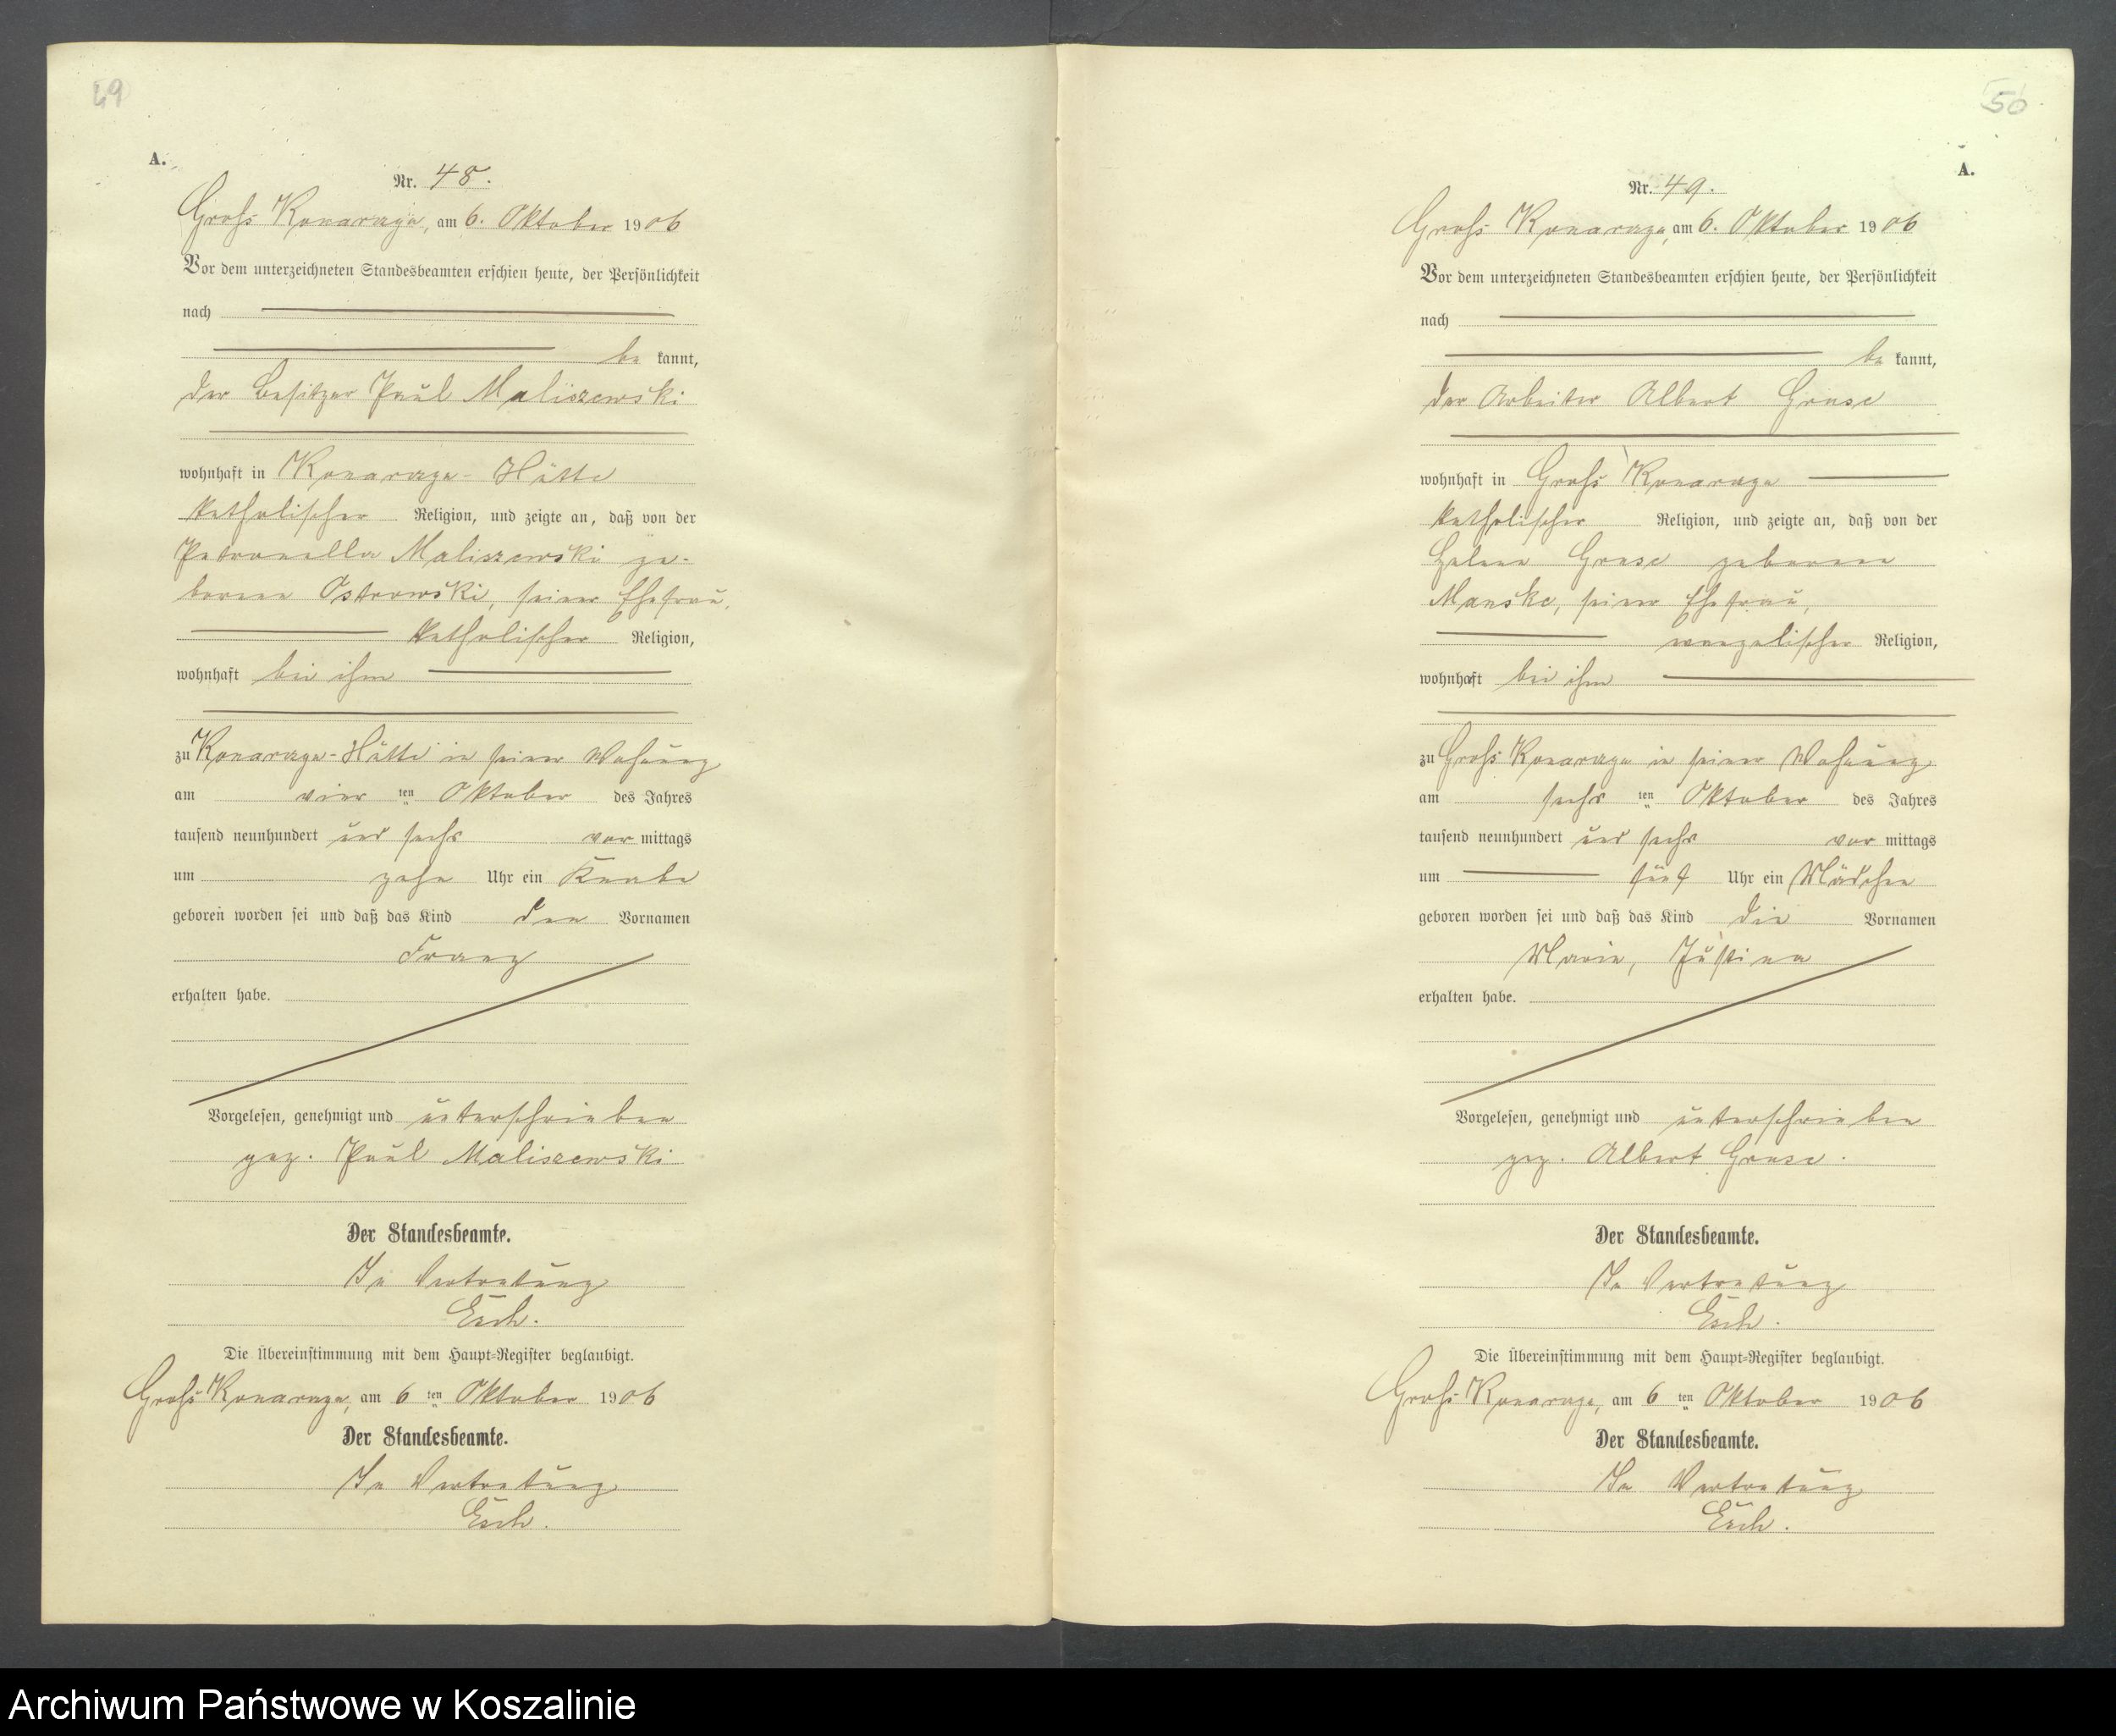 49
A.
Nr. 48.
Groß Konarzyn, am 6. Oktober 1906
Vor dem unterzeichneten Standesbeamten erschien heute, der Persönlichkeit
nach
be kannt,
der Besitzer Paul Maliszewski
wohnhaft in Konarzyn-Hütte
katholischer Religion, und zeigte an, daß von der
Petronella Maliszewski ge-
borene Ostrowski, seiner Ehefrau,
katholischer Religion,
wohnhaft bei ihm
zu Konarzyn-Hütte in seiner Wohnung
am vier ten Oktober des Jahres
tausend neunhundert und sechs vor mittags
um zehn Uhr ein Knabe
geboren worden sei und daß das Kind den Vornamen
Franz
erhalten habe.
Vorgelesen, genehmigt und unterschrieben
gez. Paul Maliszewski
Der Standesbeamte.
In Vertretung
Esch.
Die Übereinstimmung mit dem Haupt-Register beglaubigt.
Groß Konarzyn, am 6 ten Oktober 1906
Der Standesbeamte.
In Vertretung
Esch.
50
A.
Nr. 49.
Groß Konarzyn, am 6. Oktober 1906
Vor dem unterzeichneten Standesbeamten erschien heute, der Persönlichkeit
nach
be kannt,
der Arbeiter Albert
wohnhaft in Groß Konarzyn
katholischer Religion, und zeigte an, daß von der
Helene geborene
Manske, seiner Ehefrau,
evangelischer Religion,
wohnhaft bei ihm
zu Groß Konarzyn in seiner Wohnung
am sechs ten Oktober des Jahres
tausend neunhundert und sechs vor mittags
um fünf Uhr ein Mädchen
geboren worden sei und daß das Kind die Vornamen
Marie, Justina
erhalten habe.
Vorgelesen, genehmigt und unterschrieben
gez. Albert
Der Standesbeamte.
In Vertretung
Esch.
Die Übereinstimmung mit dem Haupt-Register beglaubigt.
Groß Konarzyn, am 6 ten Oktober 1906
Der Standesbeamte.
In Vertretung
Esch.
Archiwum Państwowe w Koszalinie